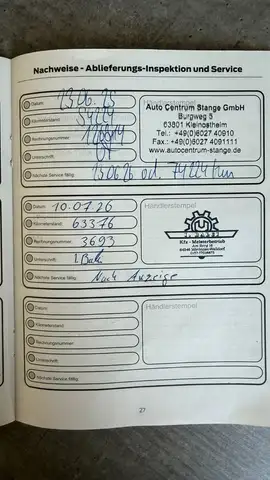 Nachweise - Ablieferungs-Inspektion und Service
Datum: 23.06.25
Kilometerstand: 54229
Rechnungsnummer:
Unterschrift:
Nächste Service fällig: 23.06.26 od. 74224 km
Händlerstempel
Auto Centrum Stange GmbH
Burgweg 5
63801 Kleinostheim
Tel.: +49(0)6027 40910
Fax.: +49(0)6027 4091111
www.autocentrum-stange.de
Datum: 10.07.26
Kilometerstand: 63376
Rechnungsnummer: 3693
Unterschrift:
Nächste Service fällig: Nach Anzeige
Händlerstempel
Kfz - Meisterbetrieb
Datum:
Kilometerstand:
Rechnungsnummer:
Unterschrift:
Nächste Service fällig:
Händlerstempel
27